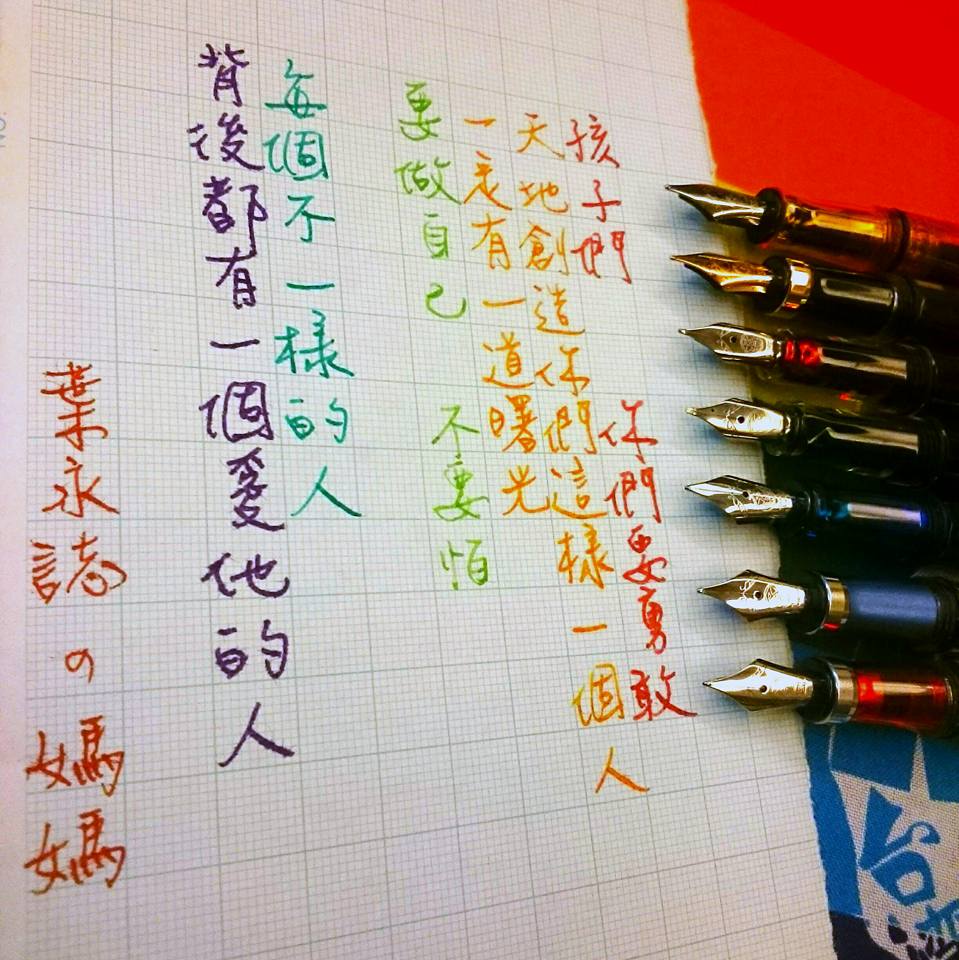 孩子們 你們要勇敢
天地創造你們這樣一個人
一定有一道曙光
要做自己 不要怕
每個不一樣的人
背後都有一個愛他的人
葉永誌の媽媽
台